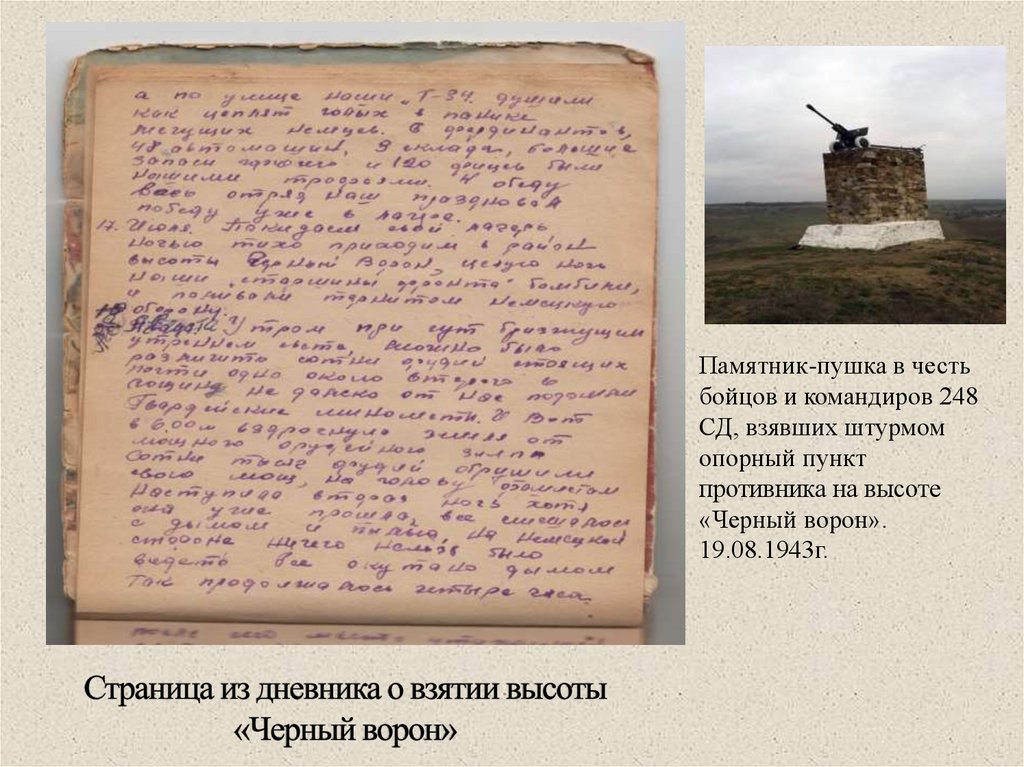 а по улице наши „Т-34" душили
как цеплят голых в панике
бегущих немцев. 6 фердинантов,
48 автомашин, 3 склада, большие
запаси горючего и 120 фрицев были
нашими трофеями. К обеду
весь отряд наш праздновал
победу уже в лагере.
17. Июля. Покидаем свой лагерь
ночью тихо приходим в район
высоты Черный Ворон, целую ночь
наши „старшины фронта" бомбили,
и поливали термитом немецкую
оборону.
Августа Утром при чут бризжущем
утреннем свете, можно было
различить сотни орудий стоящих
почти одно около второго в
гощину не далеко от нас
Гвардейские минометы. И Вот
в 6.00м вздрогнула земля от
мощного орудейного залпа
Сотни тысяч орудий обрушили
свою мощ, на голову
Наступила вторая ночь хотя
она уже прошла, все смешалось
с дымом и пылью, на немецкой
стороне ничего нельзя было
видеть все окутано дымом
Так продолжалось четыре часа.
Памятник-пушка в честь
бойцов и командиров 248
СД, взявших штурмом
опорный пункт
противника на высоте
«Черный ворон».
19.08.1943г.
Страница из дневника о взятии высоты
«Черный ворон»